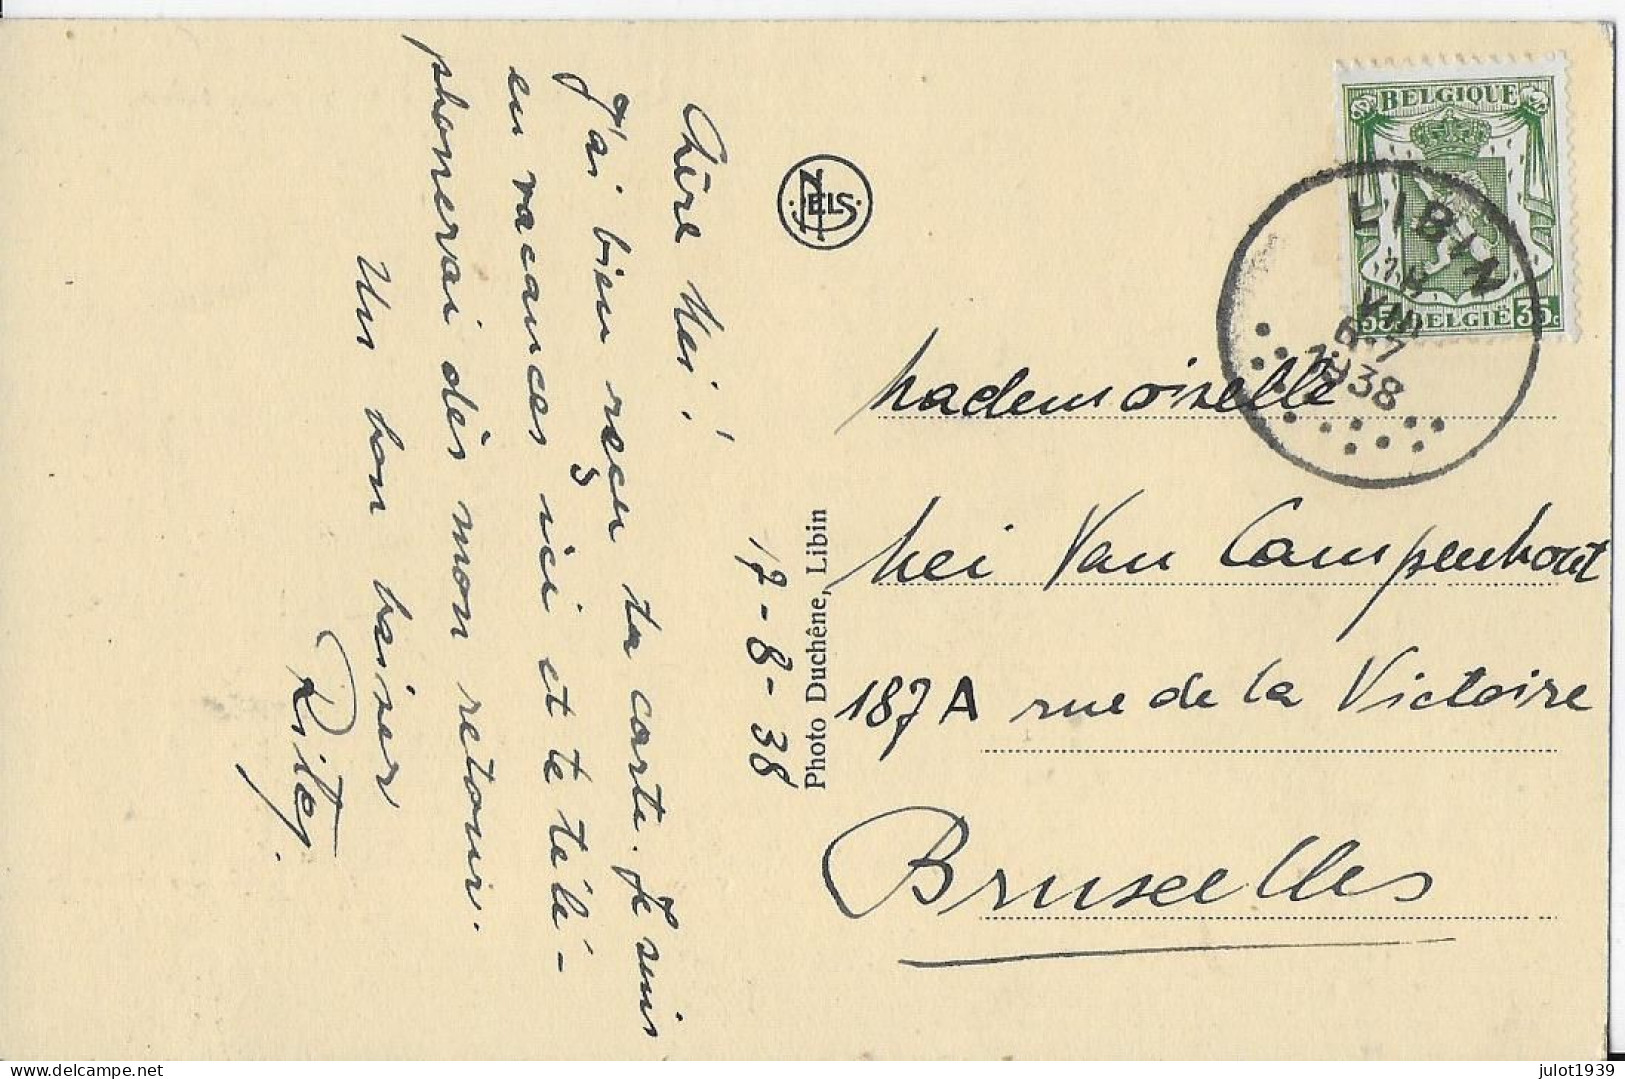 Chère Mei !
J'ai bien reçu ta carte. Je suis
en vacances ici et te télé-
phonerai dès mon retour.
Un bon baiser
Ritay.
17-8-38
NELS
Photo Duchêne, Libin
BELGIQUE
35c BELGIË 35c
LIBIN
18
VIII
6-7
1938
Mademoiselle
Mei Van Campenhout
187A rue de la Victoire
Bruxelles
delcampe.net
julot1939